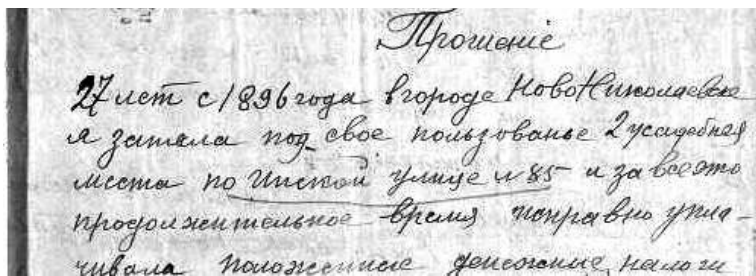 Прошенiе
27 лет с 1896 года в городе НовоНиколаевске
я заняла под свое пользованье 2 усадебная
места по Инской улице № 85 и за все это
продолжительное время исправно упла-
чивала положенные денежные налоги